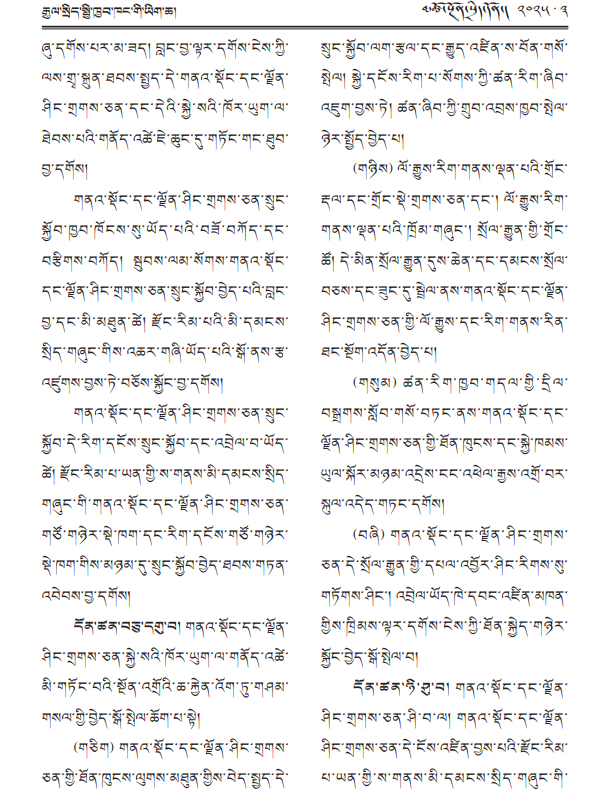 རྒྱལ་སྲིད་སྤྱི་ཁྱབ་ཁང་གི་ཡིག་ཆ།
༢༠༢༥ · ༣
ཞུ་དགོས་པར་མ་ཟད། བླང་བྱ་ལྟར་དགོས་ངེས་ཀྱི་
ལས་གྲྭ་སྒྲུན་ཐབས་སྤྱད་དེ་གནའ་སྡོང་དང་ལྗོན་
ཤིང་གྲགས་ཅན་དང་དེའི་སྐྱེ་སའི་ཁོར་ཡུག་ལ་
ཐེབས་པའི་གནོད་འཚེ་ཇེ་ཆུང་དུ་གཏོང་གང་ཐུབ་
བྱ་དགོས།
གནའ་སྡོང་དང་ལྗོན་ཤིང་གྲགས་ཅན་སྲུང་
སྐྱོབ་ཁྱབ་ཁོངས་སུ་ཡོད་པའི་བཟོ་བཀོད་དང་
བརྩིགས་བཀོད། སྦུབས་ལམ་སོགས་གནའ་སྡོང་
དང་ལྗོན་ཤིང་གྲགས་ཅན་སྲུང་སྐྱོབ་བྱེད་པའི་བླང་
བྱ་དང་མི་མཐུན་ཚེ། རྫོང་རིམ་པའི་མི་དམངས་
སྲིད་གཞུང་གིས་འཆར་གཞི་ཡོད་པའི་སྒོ་ནས་རྩ་
འཛུགས་བྱས་ཏེ་བཅོས་སྐྱོང་བྱ་དགོས།
གནའ་སྡོང་དང་ལྗོན་ཤིང་གྲགས་ཅན་སྲུང་
སྐྱོབ་དེ་རིག་དངོས་སྲུང་སྐྱོབ་དང་འབྲེལ་བ་ཡོད་
ཚེ། རྫོང་རིམ་པ་ཡན་གྱི་ས་གནས་མི་དམངས་སྲིད་
གཞུང་གི་གནའ་སྡོང་དང་ལྗོན་ཤིང་གྲགས་ཅན་
གཙོ་གཉེར་སྡེ་ཁག་དང་རིག་དངོས་གཙོ་གཉེར་
སྡེ་ཁག་གིས་མཉམ་དུ་སྲུང་སྐྱོབ་བྱེད་ཐབས་གཏན་
འབེབས་བྱ་དགོས།
དོན་ཚན་བཅུ་དགུ་བ། གནའ་སྡོང་དང་ལྗོན་
ཤིང་གྲགས་ཅན་སྐྱེ་སའི་ཁོར་ཡུག་ལ་གནོད་འཚེ་
མི་གཏོང་བའི་སྔོན་འགྲོའི་ཆ་རྐྱེན་འོག་ཏུ་གཤམ་
གསལ་གྱི་བྱེད་སྒོ་སྤེལ་ཆོག་པ་སྟེ།
(གཅིག) གནའ་སྡོང་དང་ལྗོན་ཤིང་གྲགས་
ཅན་གྱི་ཐོན་ཁུངས་ལུགས་མཐུན་གྱིས་བེད་སྤྱད་དེ་
སྲུང་སྐྱོབ་ལག་རྩལ་དང་རྒྱུད་འཛིན་ས་བོན་གསོ་
སྤེལ། སྐྱེ་དངོས་རིག་པ་སོགས་ཀྱི་ཚན་རིག་ཞིབ་
འཇུག་བྱས་ཏེ། ཚན་ཞིབ་ཀྱི་གྲུབ་འབྲས་ཁྱབ་སྤེལ་
ཉེར་སྤྱོད་བྱེད་པ།
(གཉིས) ལོ་རྒྱུས་རིག་གནས་ལྡན་པའི་གྲོང་
རྡལ་དང་གྲོང་སྡེ་གྲགས་ཅན་དང་། ལོ་རྒྱུས་རིག་
གནས་ལྡན་པའི་ཁྲོམ་གཞུང་། སྲོལ་རྒྱུན་གྱི་གྲོང་
ཚོ། དེ་མིན་སྲོལ་རྒྱུན་དུས་ཆེན་དང་དམངས་སྲོལ་
བཅས་དང་ཟུང་དུ་སྦྲེལ་ནས་གནའ་སྡོང་དང་ལྗོན་
ཤིང་གྲགས་ཅན་གྱི་ལོ་རྒྱུས་དང་རིག་གནས་རིན་
ཐང་སྔོག་འདོན་བྱེད་པ།
(གསུམ) ཚན་རིག་ཁྱབ་གདལ་གྱི་དྲིལ་
བསྒྲགས་སློབ་གསོ་བཏང་ནས་གནའ་སྡོང་དང་
ལྗོན་ཤིང་གྲགས་ཅན་གྱི་ཐོན་ཁུངས་དང་སྐྱེ་ཁམས་
ཡུལ་སྐོར་མཉམ་འདྲེས་ངང་འཕེལ་རྒྱས་འགྲོ་བར་
སྐུལ་འདེད་གཏང་དགོས།
(བཞི) གནའ་སྡོང་དང་ལྗོན་ཤིང་གྲགས་
ཅན་དེ་སྲོལ་རྒྱུན་གྱི་དཔལ་འབྱོར་ཤིང་རིགས་སུ་
གཏོགས་ཤིང་། འབྲེལ་ཡོད་ཁེ་དབང་འཛིན་མཁན་
གྱིས་ཁྲིམས་ལྟར་དགོས་ངེས་ཀྱི་ཐོན་སྐྱེད་གཉེར་
སྐྱོང་བྱེད་སྒོ་སྤེལ་བ།
དོན་ཚན་ཉི་ཤུ་བ། གནའ་སྡོང་དང་ལྗོན་
ཤིང་གྲགས་ཅན་ཤི་བ་ལ། གནའ་སྡོང་དང་ལྗོན་
ཤིང་གྲགས་ཅན་དེ་ངོས་འཛིན་བྱས་པའི་རྫོང་རིམ་
པ་ཡན་གྱི་ས་གནས་མི་དམངས་སྲིད་གཞུང་གི་